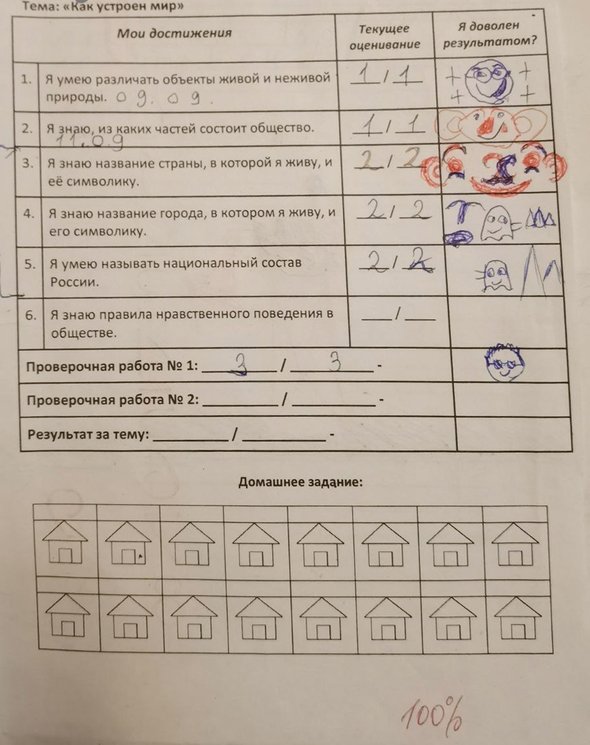 Тема: «Как устроен мир»
Мои достижения
Текущее
оценивание
Я доволен
результатом?
1. Я умею различать объекты живой и неживой
природы. 09.09.
1 / 1
2. Я знаю, из каких частей состоит общество.
11.09
1 / 1
3. Я знаю название страны, в которой я живу, и
её символику.
2 / 2
4. Я знаю название города, в котором я живу, и
его символику.
2 / 2
5. Я умею называть национальный состав
России.
2 / 2
6. Я знаю правила нравственного поведения в
обществе.
___/___
Проверочная работа № 1: 3 / 3 -
Проверочная работа № 2: ________ / ________ -
Результат за тему: ________ / ________ -
Домашнее задание:
100%